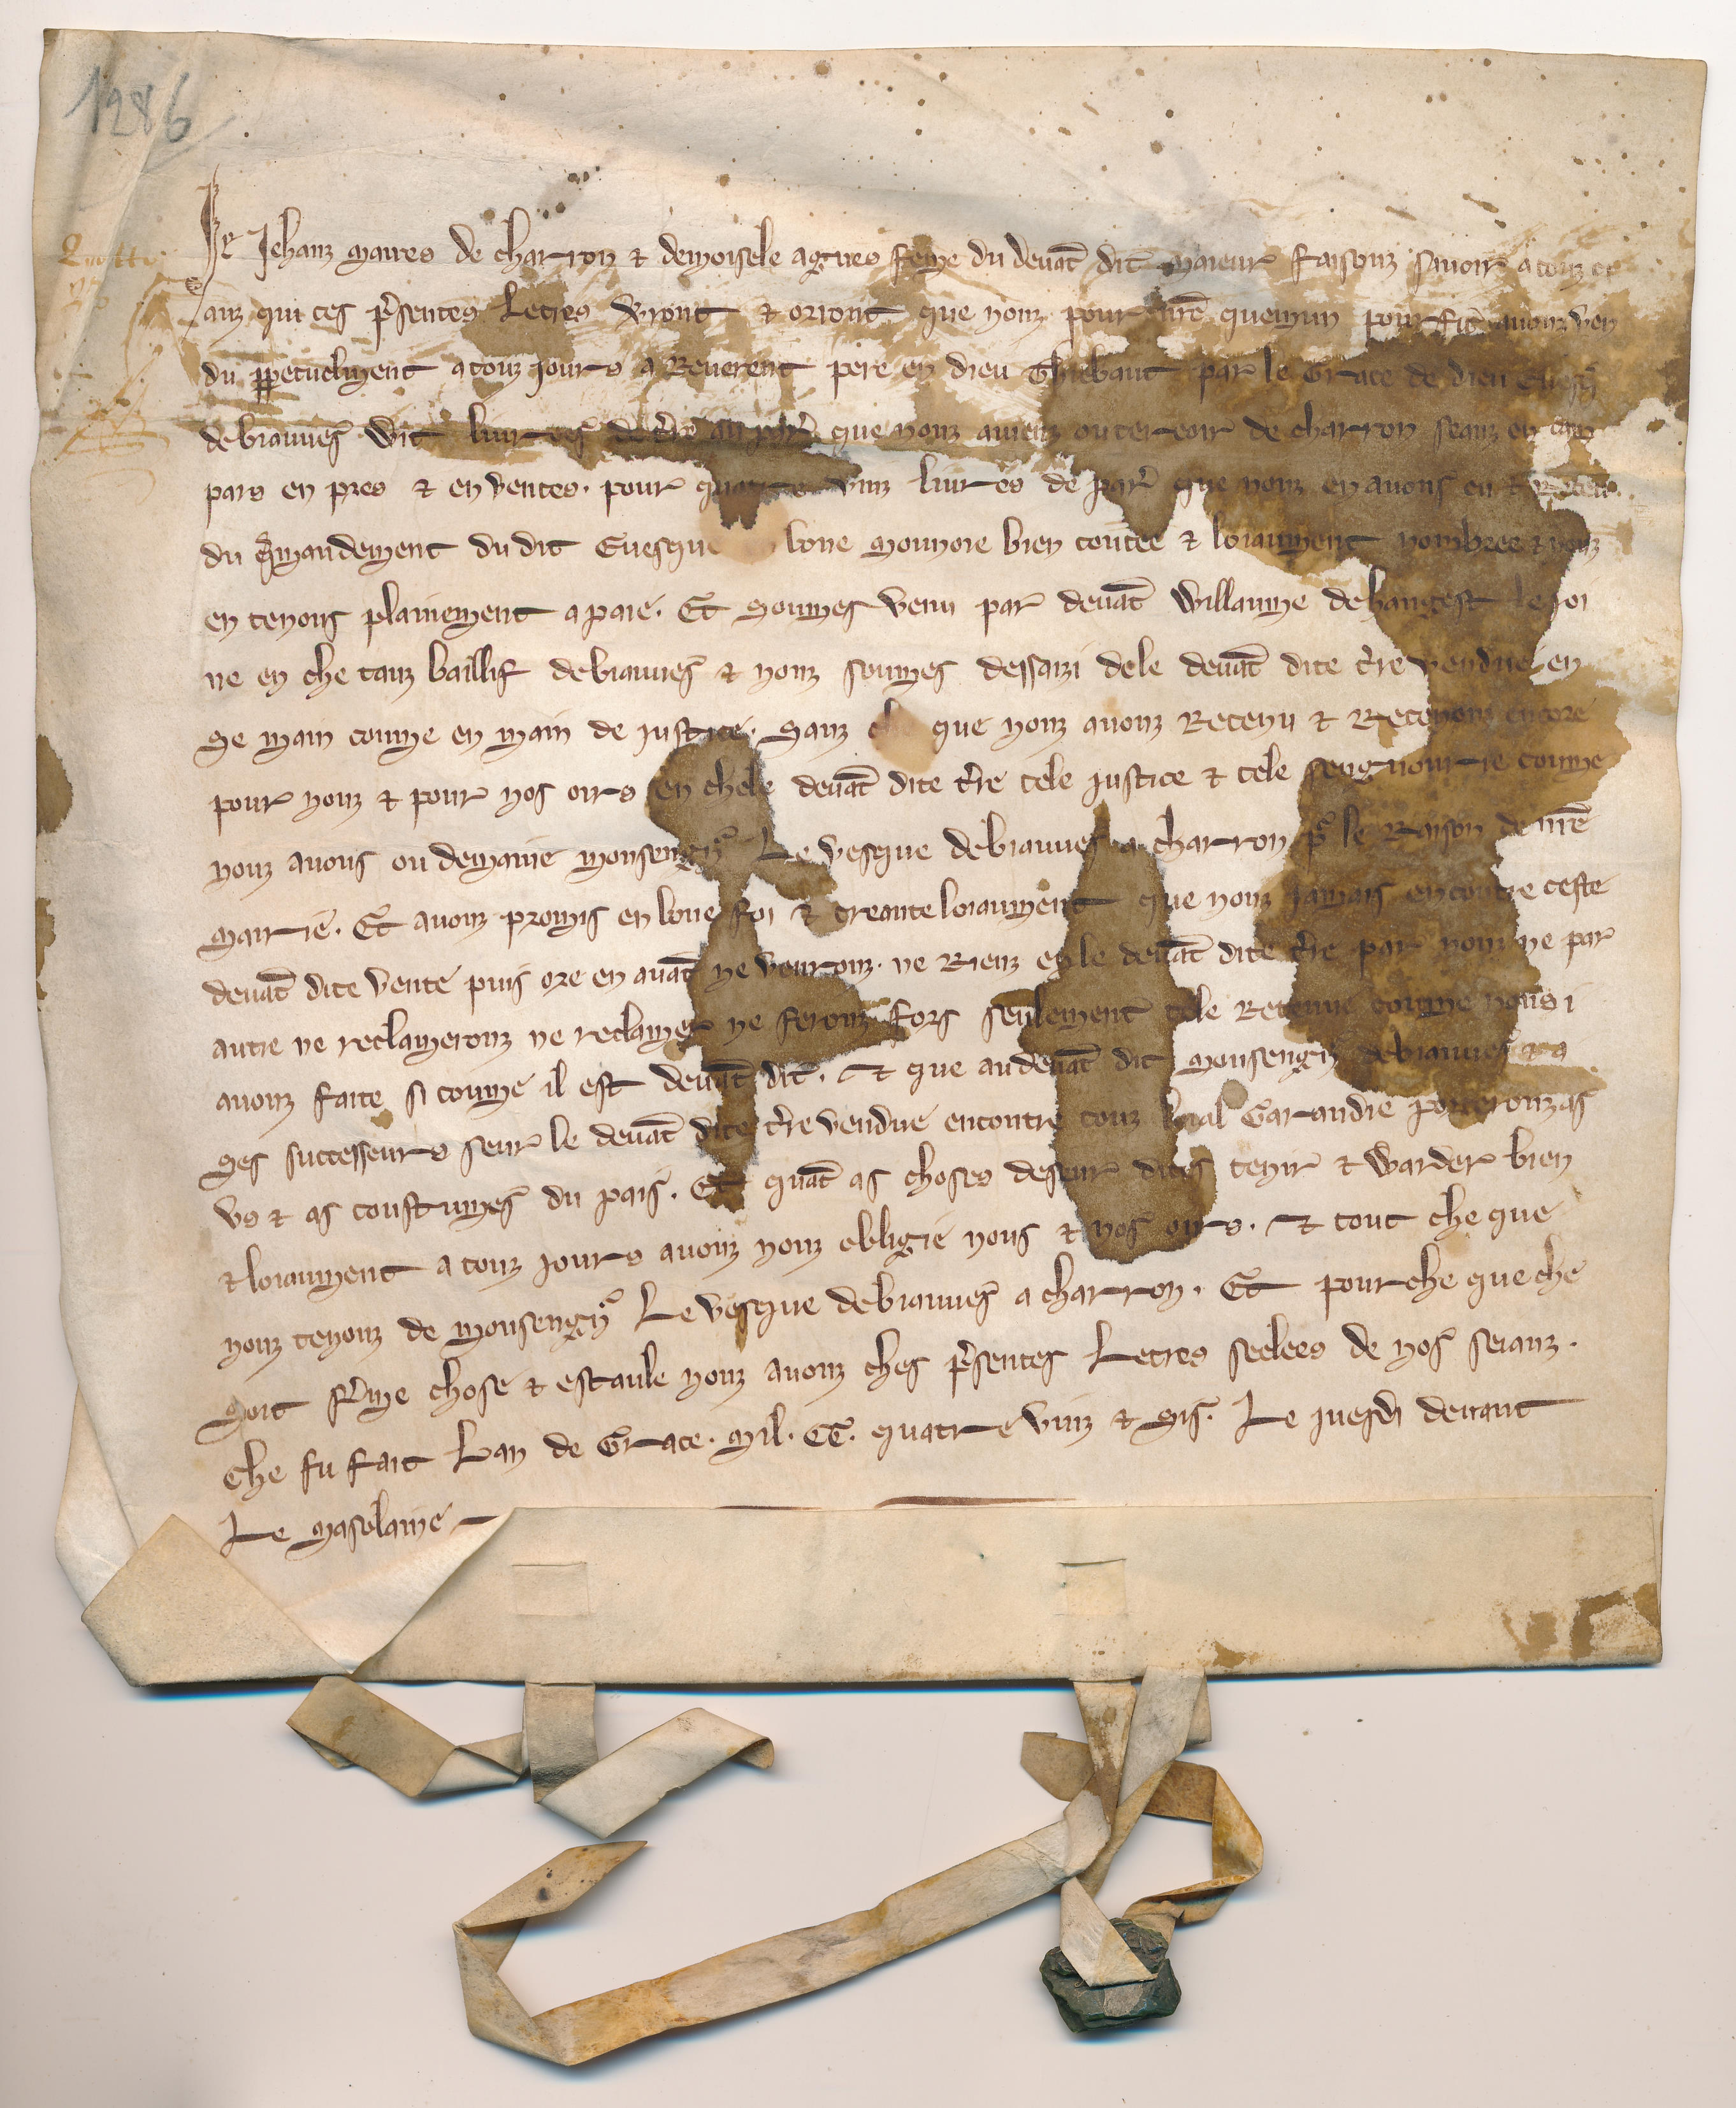 1286
Je Jehanz maires de charron & demoisele agnes feme du devāt dit maieur faisonz savoir a touz ce
aus qui ces p̄sentes Letres v̄ront & orront que nouz pour n̄re quemun pourfit avonz ven
du ppetuelment a touz jours a Reverent pere en dieu Thiebaut par le Grace de dieu Evesq̄
de biauves wit livrees de t̄re au par̄ que nouz aviens ou terroir de charron seanz en cam
pars en pres & en ventes . pour quatre vinz livres de par̄ que nouz en avons eu & Receu
du q̄mandement du dit Evesque bone monnoie bien contee & loiaument nombree & nouz
en tenons plainement a paie . Et sommes venu par devāt Willaume de hangest le joi
ne en che tanz baillif de biauves & nouz sommes dessaizi de le devāt dite t̄re vendue en
se main comme en main de justice . Sanz che que nouz avonz Retenu & Retenonz encore
pour nouz & pour nos oirs en chele devāt dite t̄re tele justice & tele sengnourie comme
nouz avons ou demaine monsengn̄ Le vesque de biauves a charron p̄ le Raison de n̄re
mairie . Et avonz promis en bone foi & creante loiaument que nouz jamais encontre ceste
devāt dite vente puis ore en avāt ne venronz . ne Rienz en le devāt dite t̄re par nouz ne par
autre ne reclameronz ne reclamer ne feronz fors seulement tele Retenue comme nous i
avonz faite si comme il est devāt dit . & que au devāt dit monsengn̄ de biauves & a
ses successeurs seur le devāt dite t̄re vendue encontre touz loial Garandie porteronz as
us & as coustumes du pais . Et quāt as choses deseur dites tenir & warder bien
& loiaument a touz jours avonz nouz obligie nous & nos oirs . & tout che que
nouz tenonz de monsengn̄ Le vesque de biauves a charron . Et pour che que che
soit f̄me chose & estaule nouz avonz ches p̄sentes Letres seelees de nos seiauz .
Che fu fait Lan de Grace . mil . CC . quatre vinz & sis . Le juesdi devant
Le Masdlaine